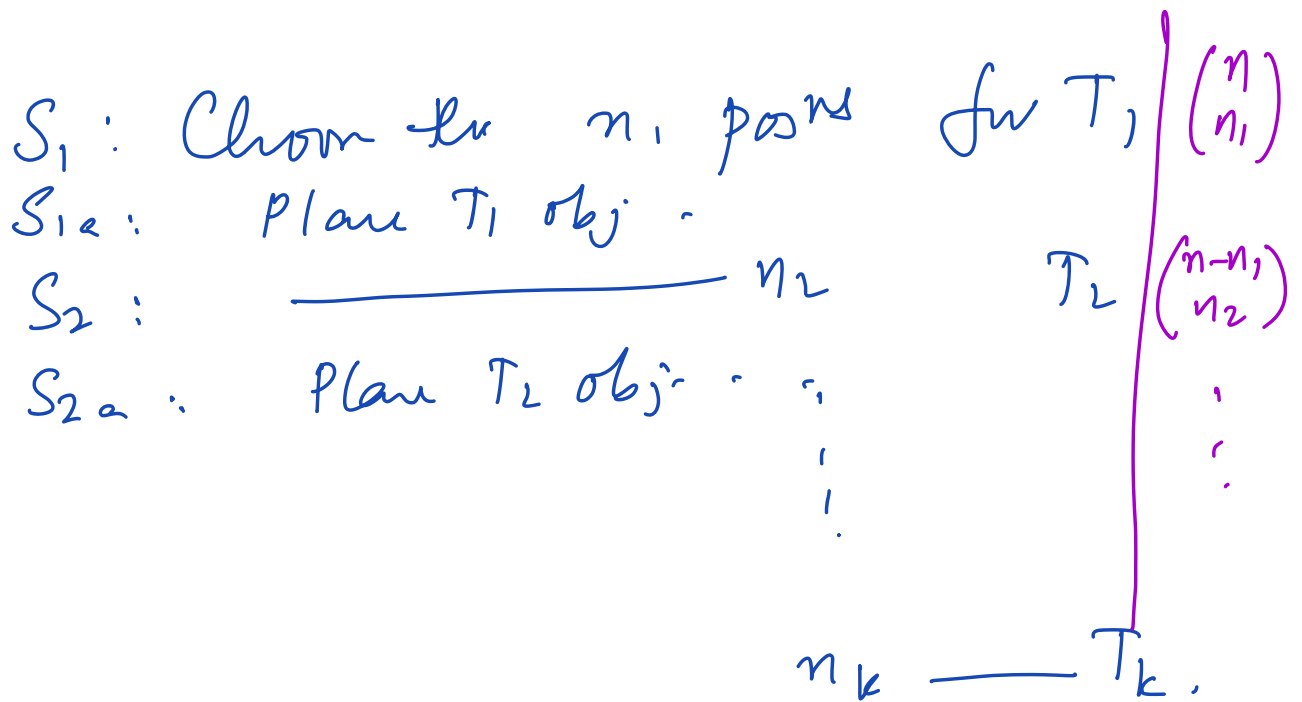 S₁ : Choose the n₁ posns for T₁ | (n n₁)
S₁ₐ : Place T₁ obj.
S₂ : ——— n₂ T₂ | (n-n₁ n₂)
S₂ₐ : Place T₂ obj. . . .
n_k —— T_k.